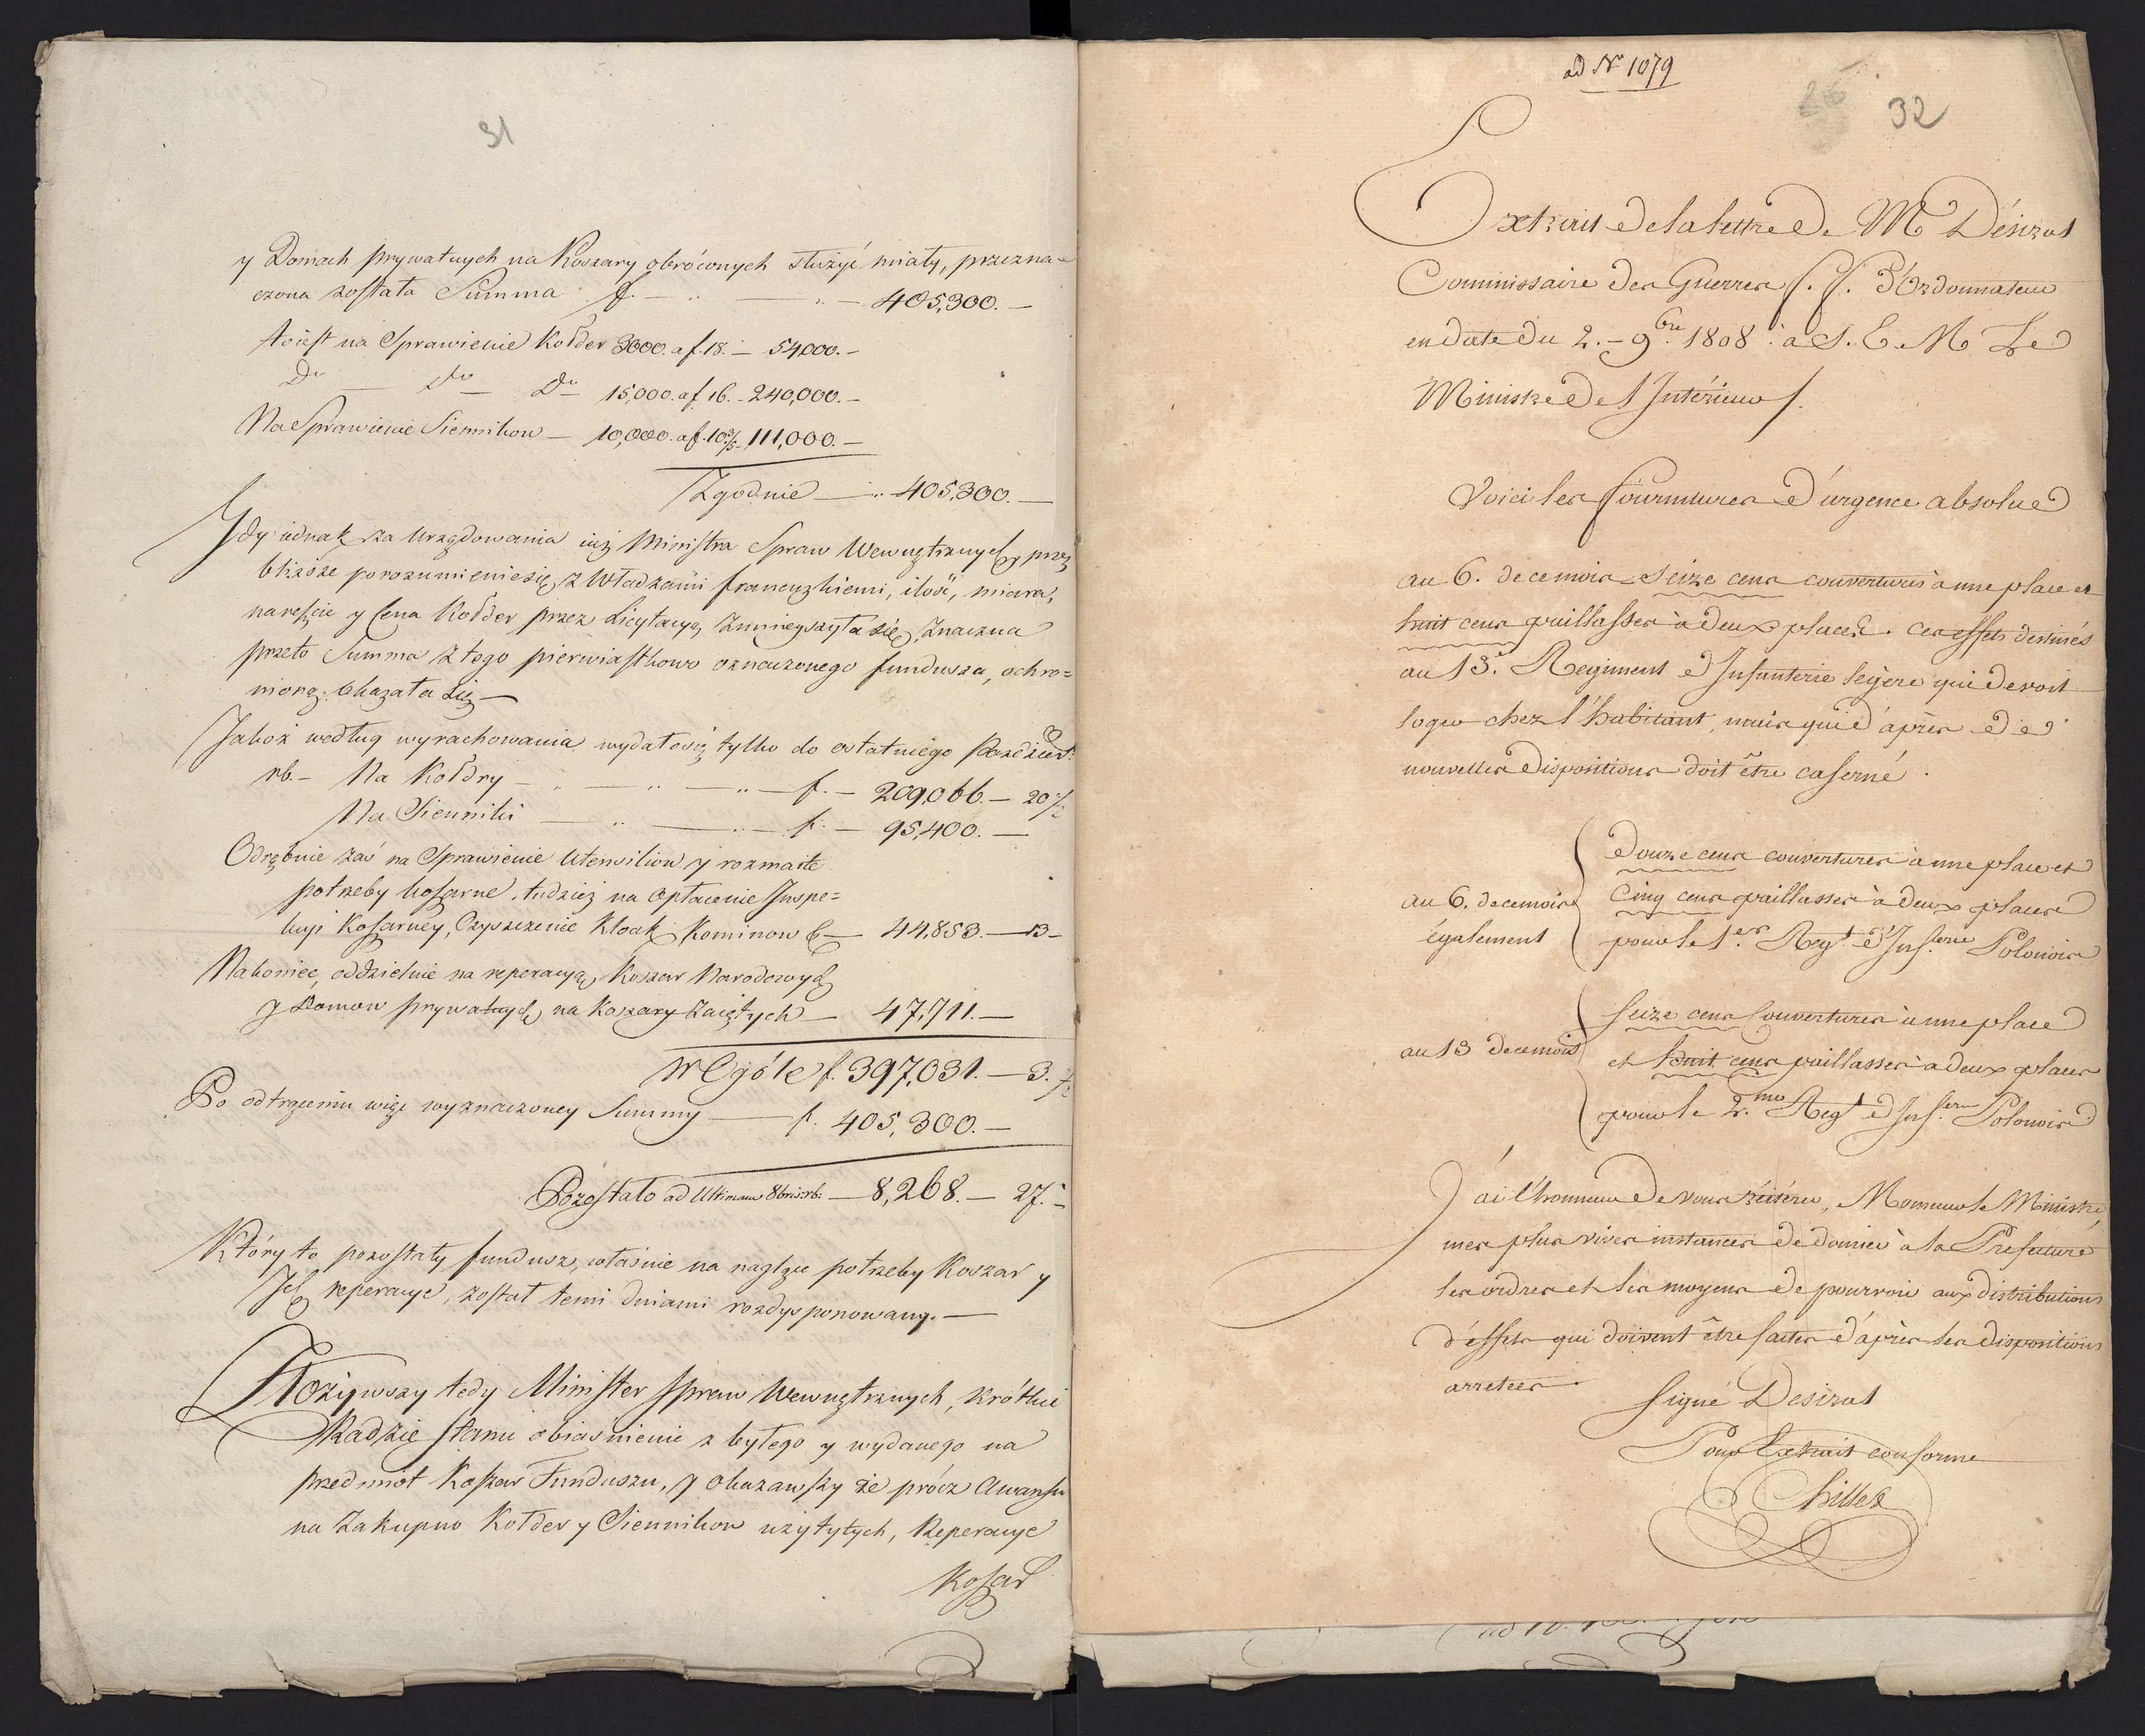 31
y Domach prywatnych na Koszary obróconych służyć miały, przezna=
czona została Summa f. — „ — „ — 405,300. —
toiest na Sprawienie Kołder 3000. a f. 18. — 54,000. —
Do — Do — Do 15,000. a f. 16. — 240,000. —
Na Sprawienie Siennikow — 10,000. a f. 111,000. —
Zgodnie — „ 405,300. —
Gdy iednak za Urzędowania iuż Ministra Spraw Wewnętrznych, przez
bliższe porozumienie się z Władzami francuzkiemi, ilość, miara,
nareszcie y Cena Kołder przez Licytacyą zmnieyszyła się, znaczna
przeto Summa z tego pierwiastkowo oznaczonego funduszu, ochro=
nioną Okazała się —
Jakoż według wyrachowania wydatości tylko do ostatniego Paździer:
rb. — Na Kołdry — „ — „ — f. — 209,066. — 20
Na Sienniki — „ — „ — f. — 95,400. —
Odrębnie zaś na Sprawienie Utensiliow y rozmaite
potrzeby koszarne, tudzież na opłacenie Inspe=
kcyi Koszarney, Czyszczenie Kloak, Kominow & — 44,853. — 13 —
Nakoniec, oddzielnie na reperacyą Koszar Narodowych
y Domow prywatnych na Koszary zaiętych — 47,711. —
w Ogóle f. 397,031. — 3.
Po odtrąceniu więc wyznaczoney Summy — f. 405,300. —
Pozostało ad Ultimam 8bris rb: — 8,268. — 27.
Który to pozostały fundusz, właśnie na nagłze potrzeby Koszar y
Ich reperacye, został temi dniami rozdysponowany. —
Złożywszy tedy Minister Spraw Wewnętrznych, krótkie
Radzie Stanu obiaśnienie z byłego y wydanego na
przedmiot Koszar Funduszu, y okazawszy że prócz Awansu
na Zakupno Kołder y Siennikow użytych, Reperacye
Koszar
ad No 1079
26
32
Extrait de la lettre de M Désirat
Commissaire des Guerres f. f. d'Ordonnateur
en date du 2. — 9bre 1808 à S. E. M Le
Ministre de l'Intérieur.
Voici les fournitures d'urgence absolue
au 6. decembre seize cens couvertures à une place et
huit cens paillasses à deux places. ces effets destinés
au 13e Regiment d'Infanterie légère qui devoit
loger chez l'habitant, mais qui d'après de
nouvelles dispositions doit être caserné.
au 6. decembre
également
douze cens couvertures à une place et
cinq cens paillasses à deux places
pour le 1er Regt d'Inferie Polonois
au 13 decembre
seize cens Couvertures à une place
et huit cens paillasses à deux places
pour le 2.me Regt d'Inferie Polonois
J'ai l'honneur de vous réiterer, Monsieur le Ministre,
mes plus vives instances de donner à la Prefecture
les ordres et les moyens de pourvoir aux distributions
d'effets qui doivent être faites d'après les dispositions
arretees.
signé Desirat
Pour Extrait conforme